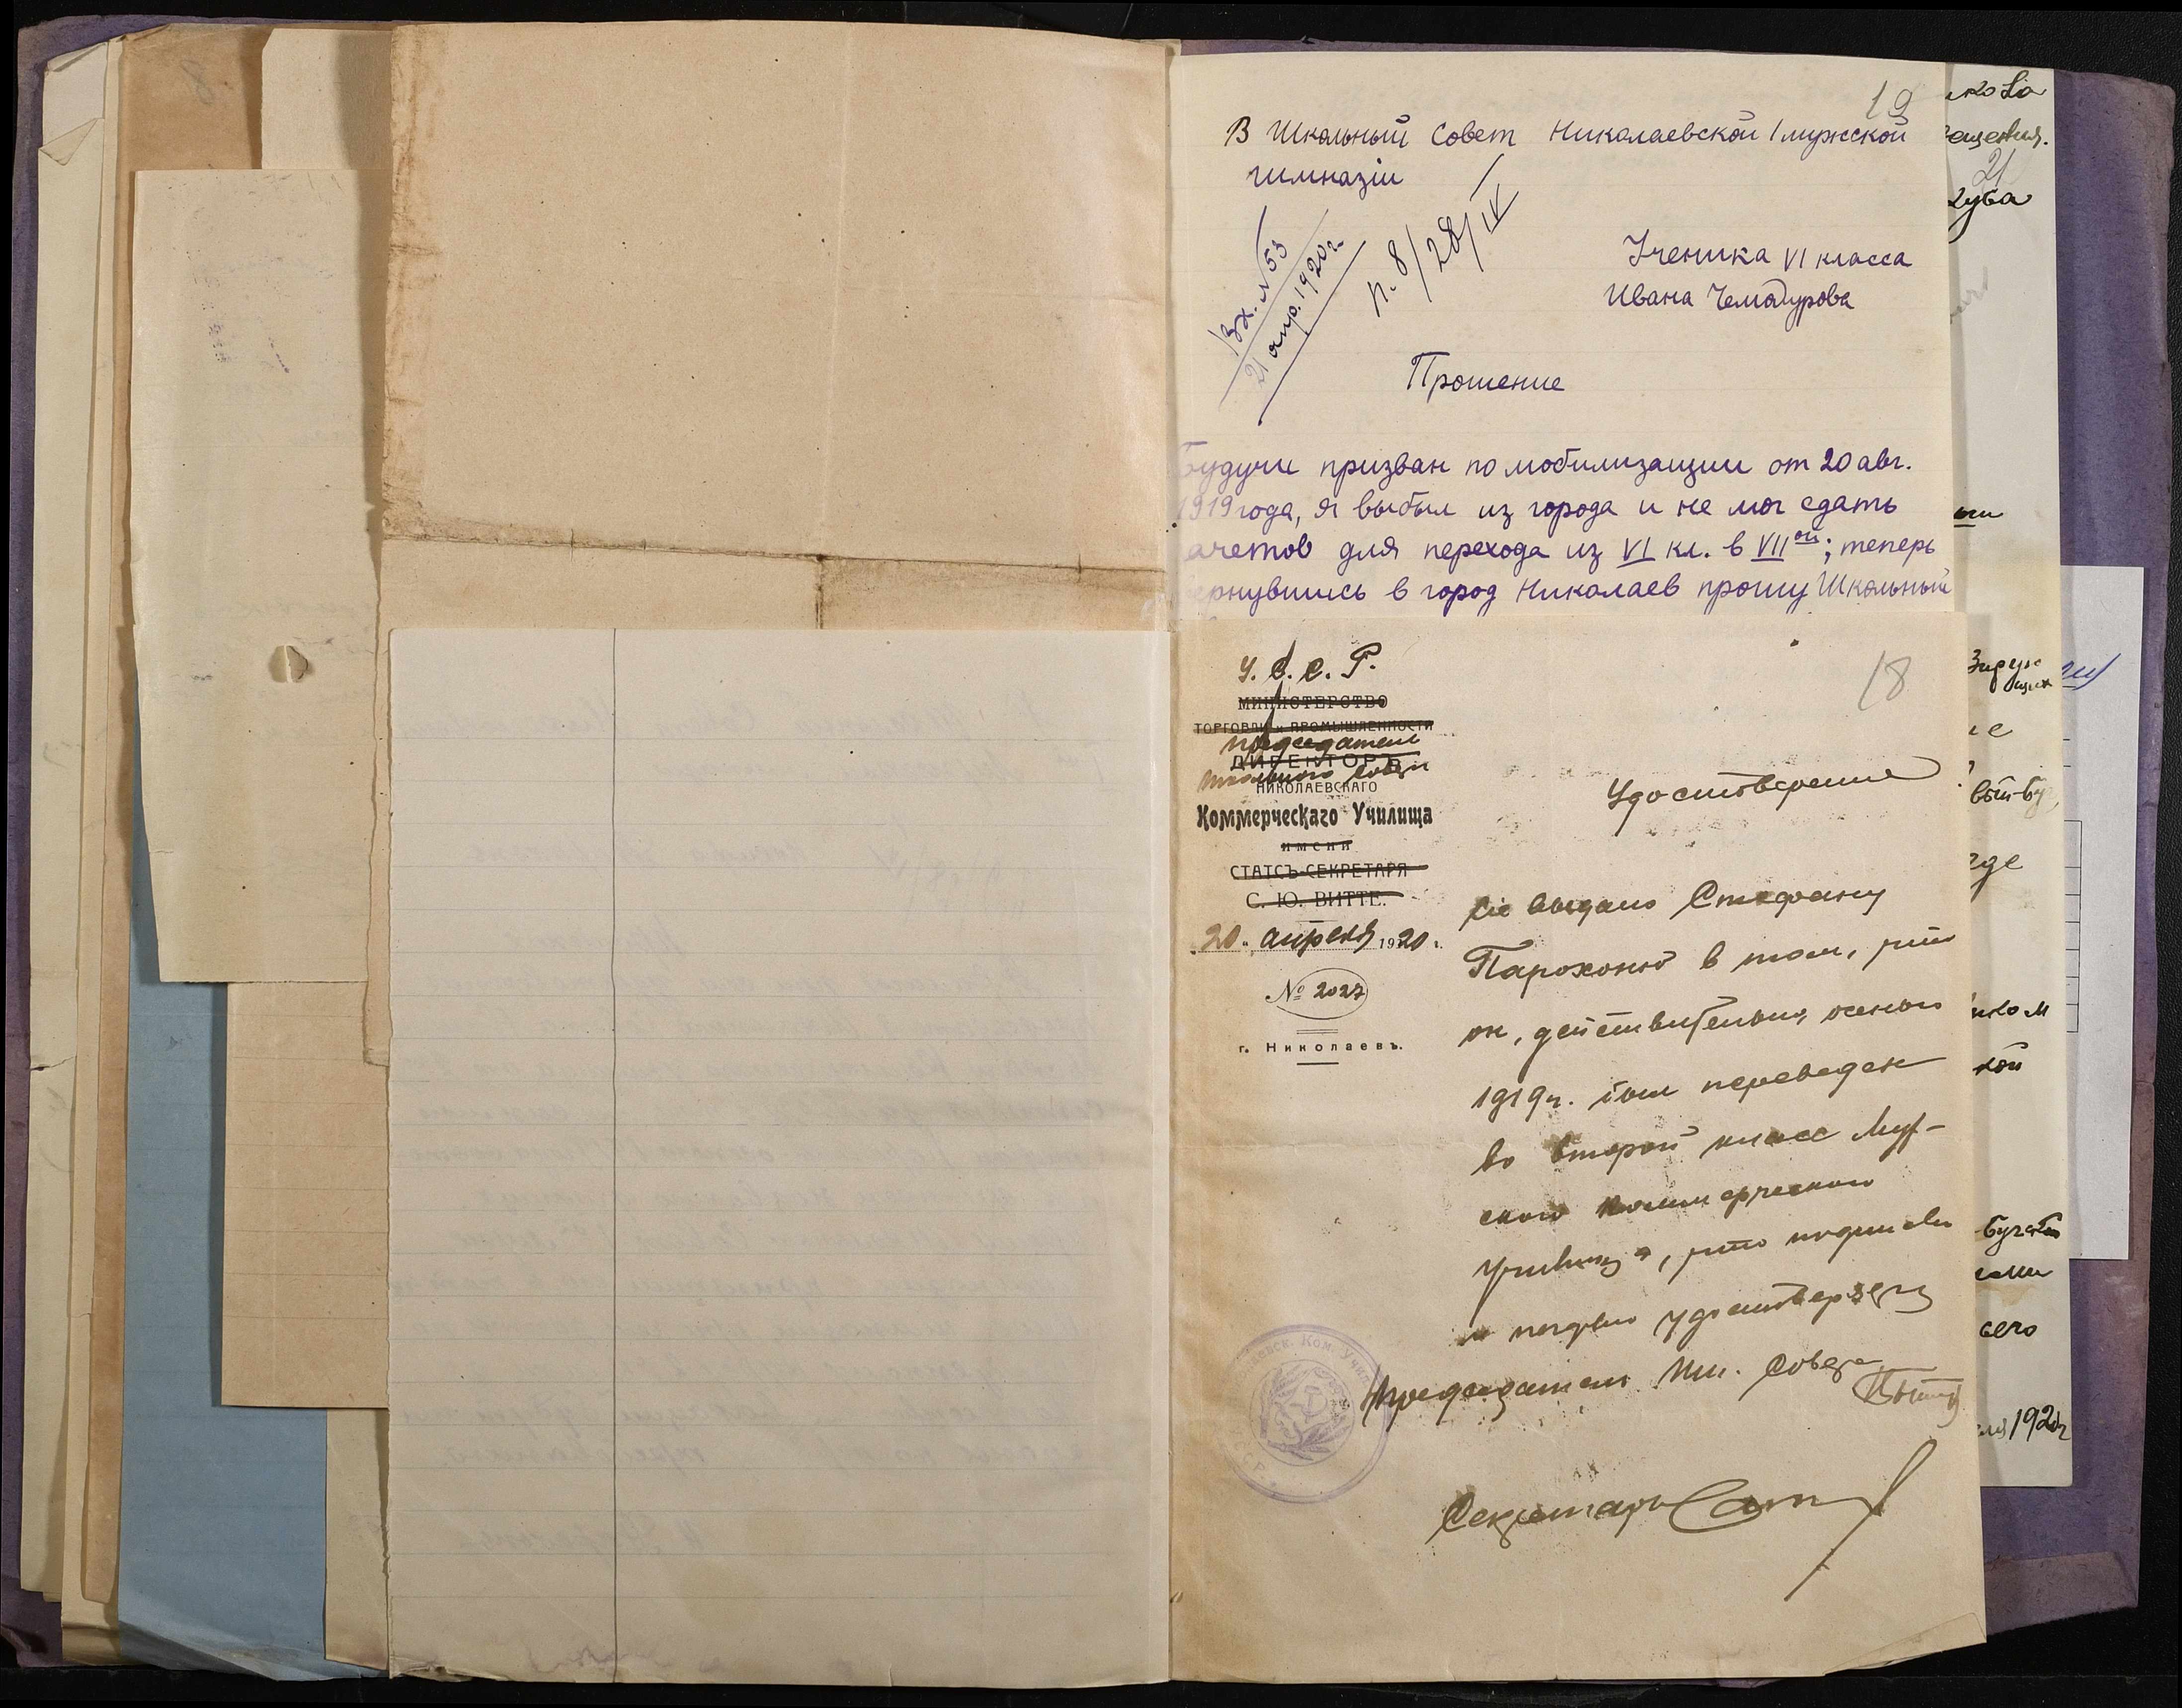 19
В Школьный Совет Николаевской I мужской
гимназіи
Вх. № 53
21 апр. 1920 г.
п. 8/28/IV
Ученика VI класса
Ивана Чемодурова
Прошение
Будучи призван по мобилизации от 20 авг.
1919 года, я выбыл из города и не мог сдать
ачетов для перехода из VI кл. в VII ой; теперь
ернувшись в город Николаев прошу Школьный
18
У. С. С. Р.
МИНИСТЕРСТВО
ТОРГОВЛИ и ПРОМЫШЛЕННОСТИ
председатель
ДИРЕКТОРЪ
школьного совета
НИКОЛАЕВСКАГО
Коммерческаго Училища
имени
СТАТСЪ-СЕКРЕТАРЯ
С. Ю. ВИТТЕ.
20 апреля 1920 г.
№ 2027
г. Николаевъ.
Удостоверение
Сие выдано Стефану
Парохоню в том, что
он, действительно, осенью
1919 г. был переведен
во второй класс Муж-
ского коммерческого
училища, что подписью
и печатью удостоверяет
Председатель Шк. Совета
Секретарь
21
еро
1920 г
8